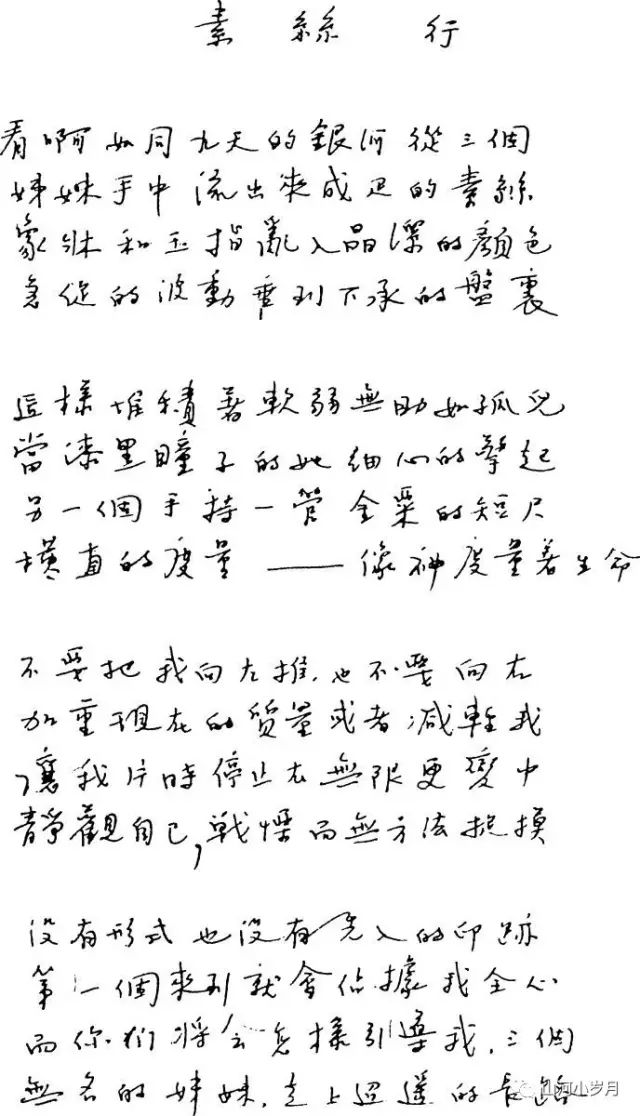 素絲行
看啊如同九天的銀河從三個
姊妹手中流出來成疋的素絲
象牀和玉指亂入晶瑩的顏色
急促的波動垂到下承的盤裏
這樣堆積著軟弱無助如孤兒
當漆黑瞳子的她細心的擎起
另一個手持一管金粟的短尺
橫直的度量——像神度量著生命
不要把我向左推,也不要向右
加重現在的質量或者減輕我
讓我片時停止在無限更變中
靜觀自己,戰慄而無方法捉摸
沒有形式也沒有先入的印跡
第一個來到就會佔據我全心
而你們將會怎樣引導我,三個
無名的姊妹,走上迢遙的長路
山河小岁月